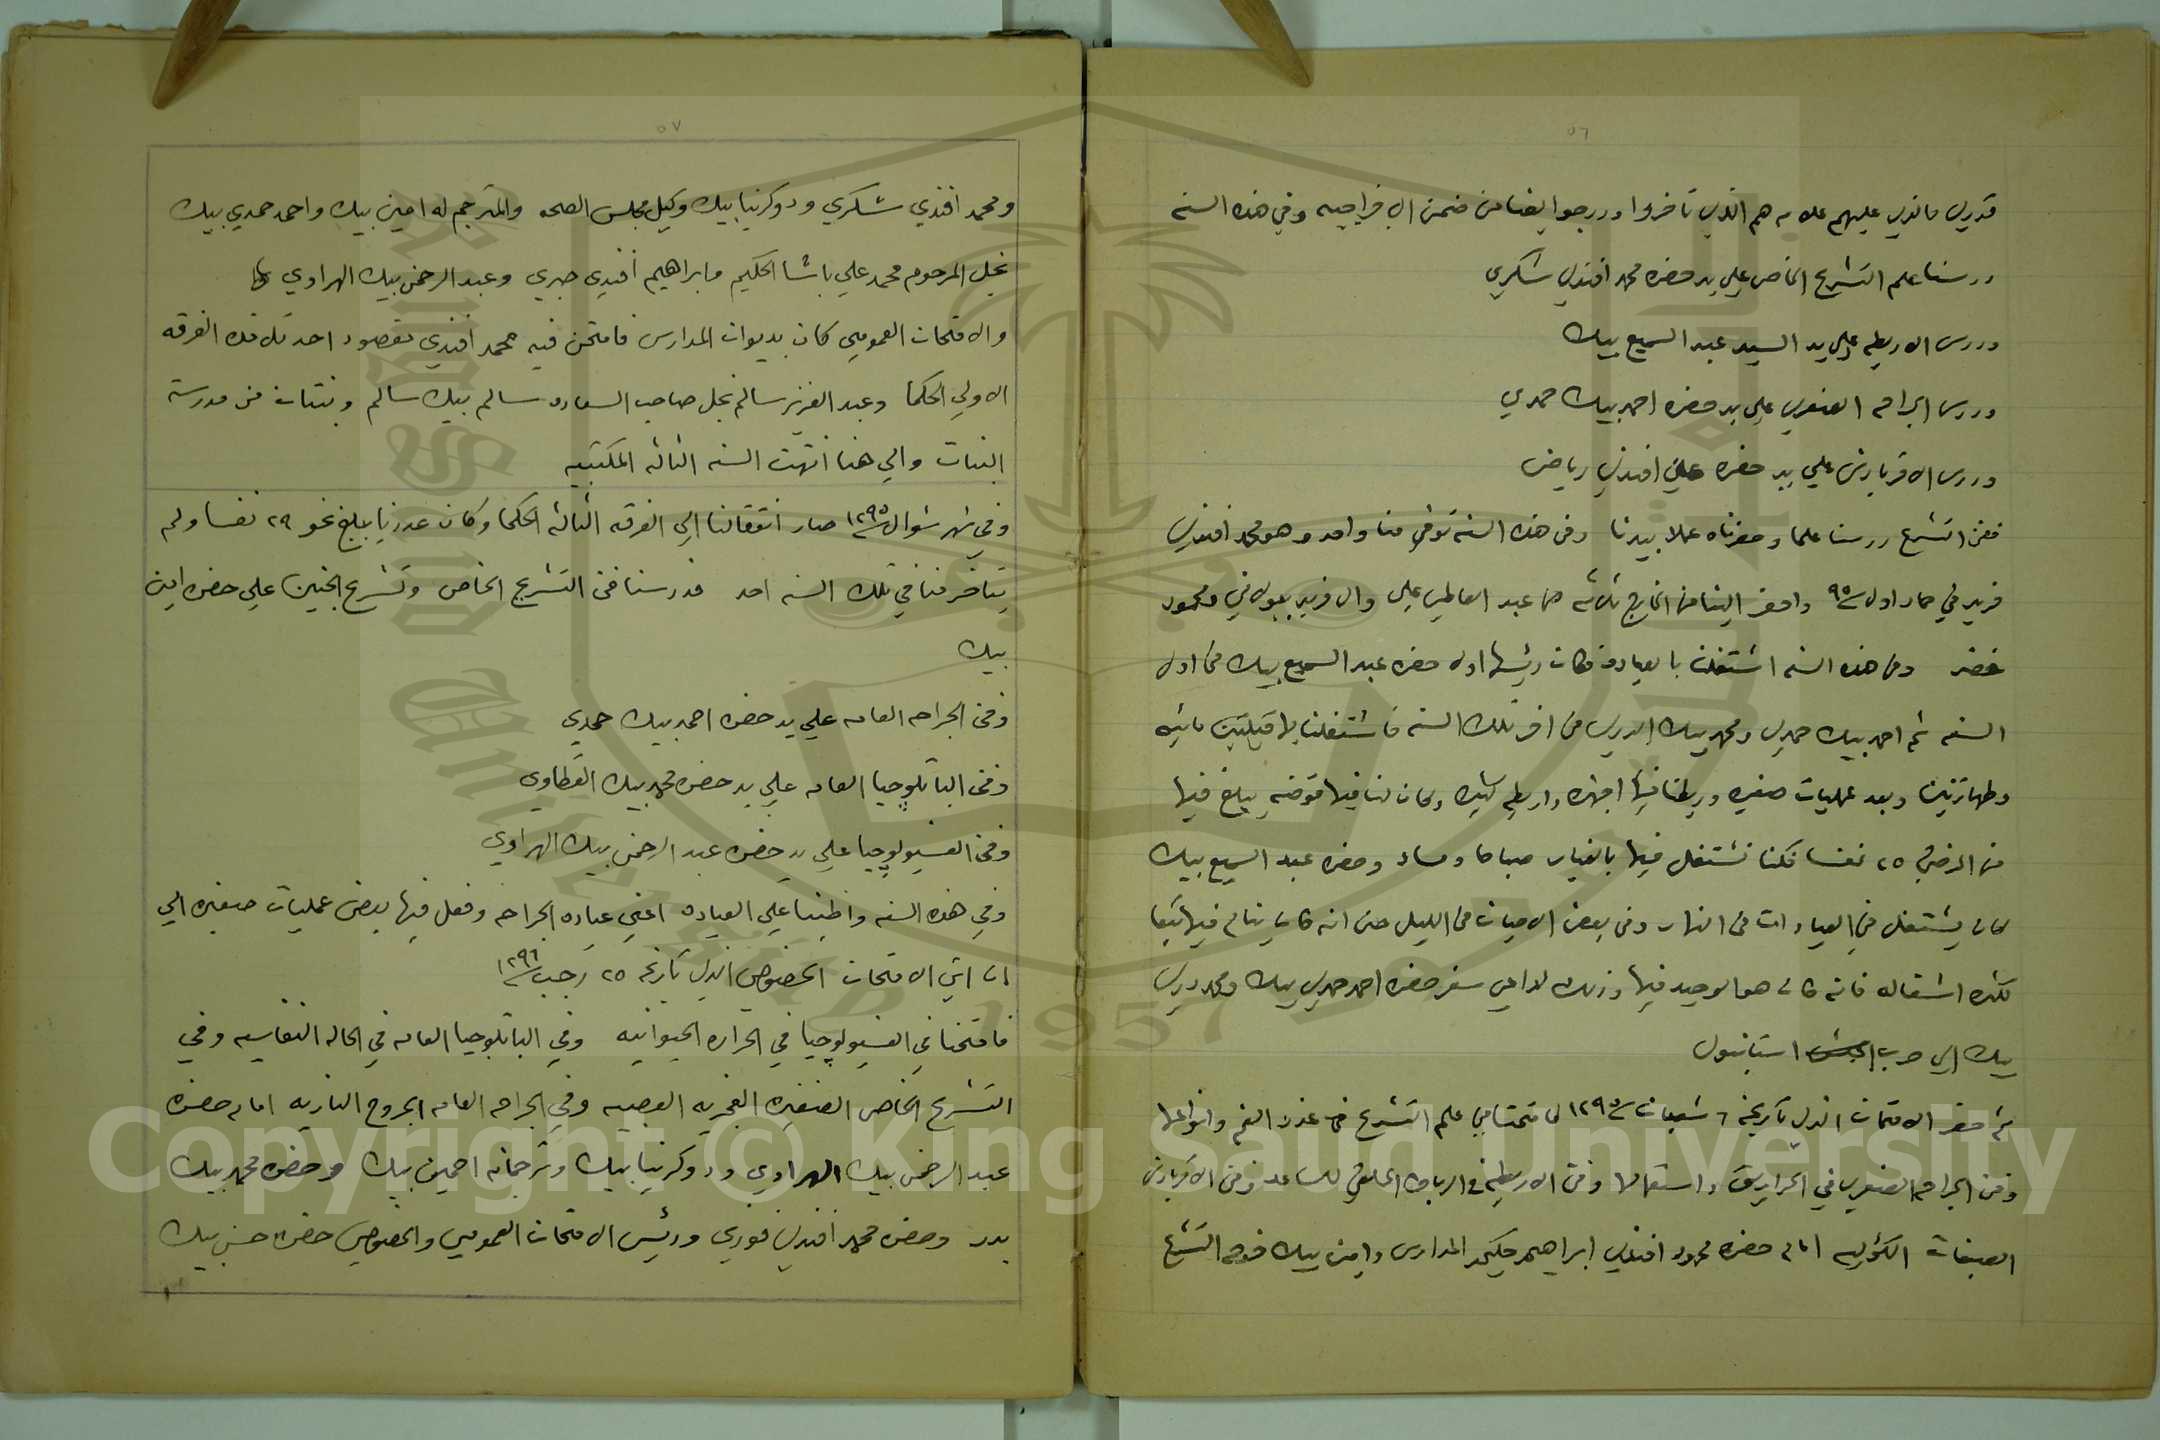 ٥٦
قدري فالذي عليهم علامه هم الذين تاخروا ودرجوا ايضا من ضمن الاقراحيه وفي هذه السنه
درسنا علم التشريح الخاص علي يد حضره محمد افندي شكري
ودرس الاربطه علي يد السيد عبد السميع بيك
ودرس الجراحه الصغري علي يد حضره احمد بيك حمدي
ودرس الاقربازين علي يد حضره علي افندي رياض
ففن التشريح درسنا علما وحضرناه عملا بيدنا وفي هذه السنه توفي منا واحد وهو محمد افندي
فريد في جماد اول سنة ٩٥ واحضر الينا من الخارج ثلاثه هما عبد العاطي علي والفريد بولاني ومحمود
خضر وفي هذه السنه اشتغلنا بالعياده فكان رئيسها اولا حضره عبد السميع بيك في اول
السنه ثم احمد بيك حمدي ومحمد بيك الدري في اخر تلك السنه فاشتغلنا
وطهارتين وبعد عمليات صغيره وربطنا فيها اجهزه واربطه كثيره وكان لنا فيها يبلغ فيها
من المرضي ٢٥ نفسا فكنا نشتغل فيها بالغيار صباحا ومساء وحضره عبد السميع بيك
كان يشتغل في العيادات في النهار وفي بعض الاحيان في الليل حتي انه كان ينام فيها تبعا
لكثره اشتغاله فانه كان هو الوحيد فيها وذلك لداعي سفر حضره احمد حمدي بيك ومحمد دري
بيك الي حرب استانبول
ثم حضر الامتحان الذي تاريخه ٦ شعبان سنة ١٢٩٥ فامتحنا في علم التشريح في غدد الفم وانواعها
وفن الجراحه الصغري في الحراريق واستعمالها وفن الاربطه في الرباط الحلقي للساعد وفن الاقربازين
الصبغات الكؤليه امام حضره محمود افندي ابراهيم حكيم المدارس وامين بيك خوجه التشريح
٥٧
ومحمد افندي شكري ودوكرنيا بيك وكيل مجلس الصحه والمترجم له امين بيك واحمد حمدي بيك
نجل المرحوم محمد علي باشا الحكيم وابراهيم افندي صبري وعبد الرحمن بيك الهراوي
والامتحان العمومي كان بديوان المدارس فامتحن فيه محمد افندي مقصود احد تلامذه الفرقه
الاولي الحكما وعبد العزيز سالم نجل صاحب السعاده سالم بيك سالم وبنتان من مدرسة
البنات والي هنا انتهت السنه الثانيه المكتبيه
وفي شهر شوال سنة ١٢٩٥ صار انتقالنا الي الفرقه الثالثه الحكما وكان عددنا يبلغ نحو ٢٩ نفسا ولم
يتاخر منا في تلك السنه احد فدرسنا فن التشريح الخاص وتشريح الجنين علي حضره امين
بيك
وفن الجراحه العامه علي يد حضره احمد بيك حمدي
وفن الباتلوجيا العامه علي يد حضره محمد بيك القطاوي
وفن الفسيولوجيا علي يد حضره عبد الرحمن بيك الهراوي
وفي هذه السنه واظبنا علي العياده اعني عياده الجراحه وفعل فيها بعض عمليات صغيره الي
ان اتي الامتحان الخصوصي الذي تاريخه ٢٥ رجب سنة ١٢٩٦
فامتحنا في الفسيولوجيا في الحراره الحيوانيه وفي الباتلوجيا العامه في الحاله النفاسيه وفي
التشريح الخاص الضفيره العجزيه العصبيه وفي الجراحه العامه الجروح الناريه امام حضره
عبد الرحمن بيك الهراوي ودوكرنيا بيك وترجمانه امين بيك وحضره محمد بيك
بدر وحضره محمد افندي فوزي ورئيس الامتحان العمومي والخصوصي حضره حسن بيك
Copyright © King Saud University
King Saud University
1957